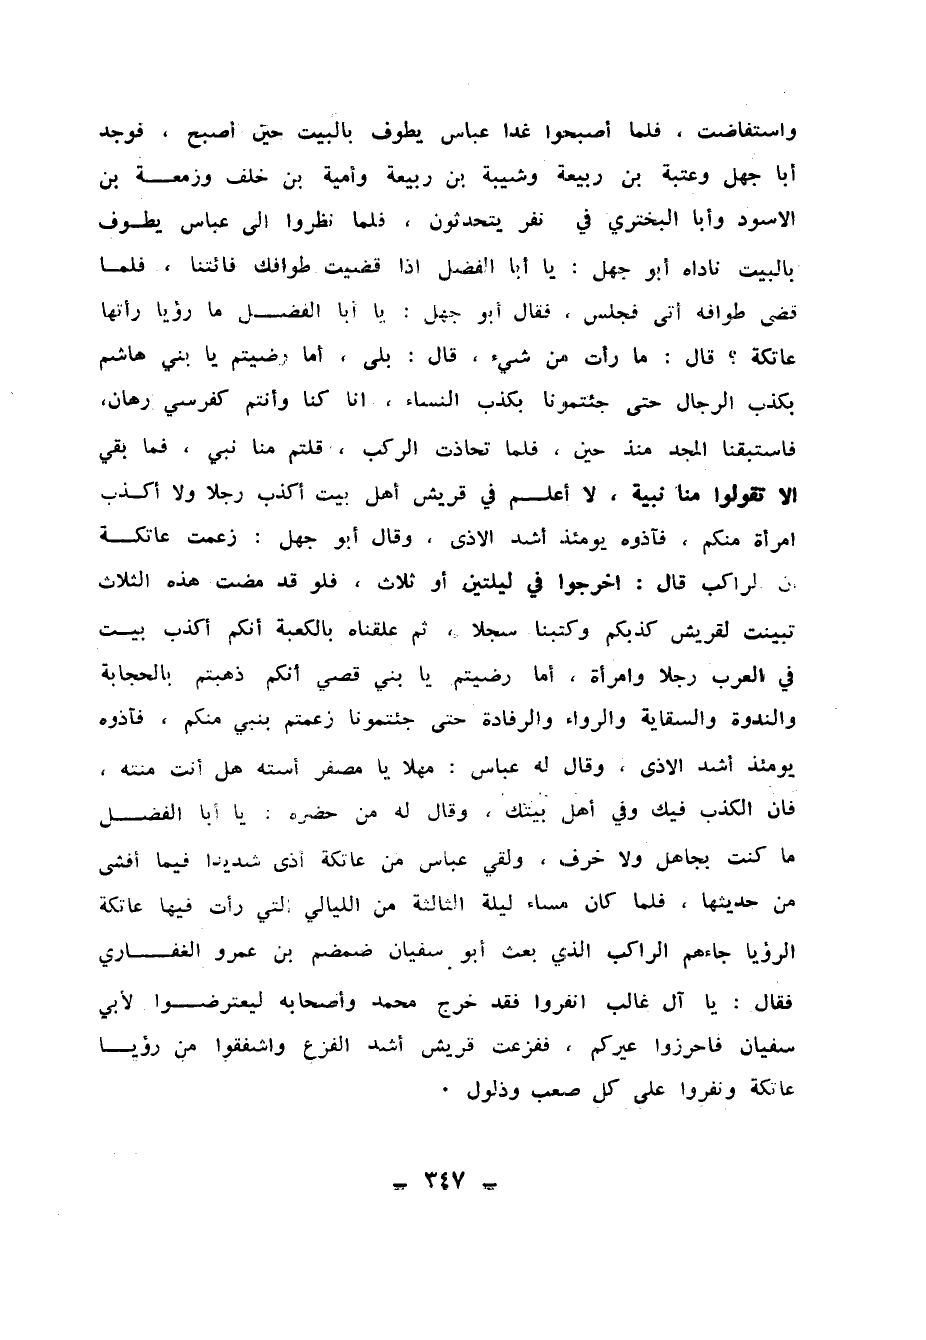 واستفاضت ، فلما أصبحوا غدا عباس يطوف بالبيت حين أصبح ، فوجد
أبا جهل وعتبة بن ربيعة وشيبة بن ربيعة وأمية بن خلف وزمعة بن
الاسود وأبا البختري في نفر يتحدثون ، فلما نظروا الى عباس يطوف
بالبيت ناداه أبو جهل : يا أبا الفضل اذا قضيت طوافك فائتنا ، فلما
قضى طوافه أتى فجلس ، فقال أبو جهل : يا أبا الفضل ما رؤيا رأتها
عاتكة ؟ قال : ما رأت من شيء ، قال : بلى ، أما رضيتم يا بني هاشم
بكذب الرجال حتى جئتمونا بكذب النساء ، انا كنا وأنتم كفرسي رهان،
فاستبقنا المجد منذ حين ، فلما تحاذت الركب ، قلتم منا نبي ، فما بقي
الا تقولوا منا نبية ، لا أعلم في قريش أهل بيت أكذب رجلا ولا أكذب
امرأة منكم ، فآذوه يومئذ أشد الاذى ، وقال أبو جهل : زعمت عاتكة
ن لراكب قال : اخرجوا في ليلتين أو ثلاث ، فلو قد مضت هذه الثلاث
تبينت لقريش كذبكم وكتبنا سجلا ، ثم علقناه بالكعبة أنكم أكذب بيت
في العرب رجلا وامرأة ، أما رضيتم يا بني قصي أنكم ذهبتم بالحجابة
والندوة والسقاية والرواء والرفادة حتى جئتمونا زعمتم بنبي منكم ، فآذوه
يومئذ أشد الاذى ، وقال له عباس : مهلا يا مصفر أسته هل أنت منته ،
فان الكذب فيك وفي أهل بيتك ، وقال له من حضره : يا أبا الفضل
ما كنت بجاهل ولا خرف ، ولقي عباس من عاتكة أذى شديدا فيما أفشى
من حديثها ، فلما كان مساء ليلة الثالثة من الليالي التي رأت فيها عاتكة
الرؤيا جاءهم الراكب الذي بعث أبو سفيان ضمضم بن عمرو الغفاري
فقال : يا آل غالب انفروا فقد خرج محمد وأصحابه ليعترضوا لأبي
سفيان فاحرزوا عيركم ، ففزعت قريش أشد الفزع واشفقوا من رؤيا
عاتكة ونفروا على كل صعب وذلول .
– ٣٤٧ –